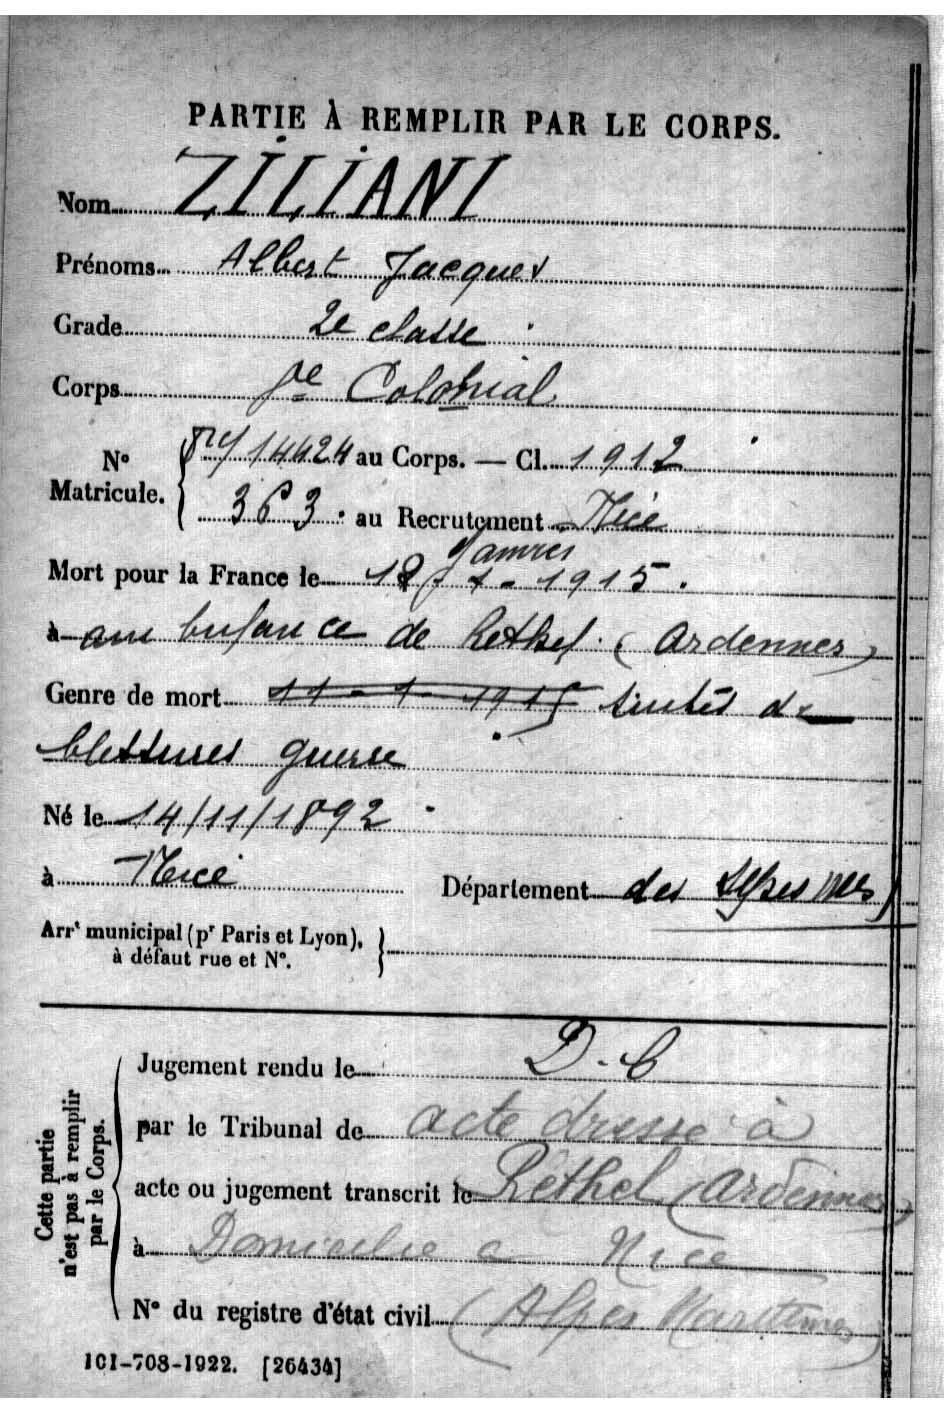 PARTIE À REMPLIR PAR LE CORPS.
Nom ZILIANI
Prénoms Albert Jacques
Grade 2e classe
Corps Colonial
N° Matricule. 14424 au Corps. — Cl. 1912
363 au Recrutement Nice
Janvier
Mort pour la France le 18 - 1 - 1915.
à ambulance de Rethel (Ardennes)
Genre de mort 11 - 1 - 1915 suites de
blessures guerre
Né le 14/11/1892
à Nice Département des Alpes Mes
Arrt municipal (pr Paris et Lyon),
à défaut rue et N°.
Cette partie n'est pas à remplir par le Corps.
Jugement rendu le D.C
par le Tribunal de acte dressé à
acte ou jugement transcrit le Réthel (Ardennes)
à Domicilié a Nice
N° du registre d'état civil (Alpes Maritimes)
101-708-1922. [26434]